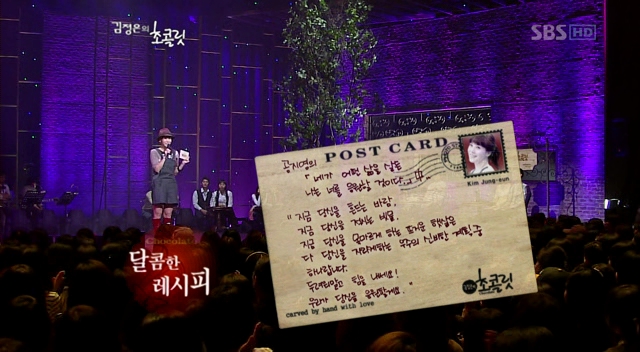 김정은의 초콜릿
SBS HD
POST CARD
공지영의
"네가 어떤 삶을 살든
나는 너를 응원할 것이다" 中
Kim Jung-eun
"지금 당신을 흔드는 바람,
지금 당신을 적시는 비
지금 당신을 목마르게 하는 뜨거운 태양은
다 당신을 자라게하는 우주의 신비한 계획 중
하나입니다.
두려워말고 힘을 내세요!
우리가 당신을 응원할게요."
초콜릿
carved by hand with love
Chocolate
달콤한
레시피